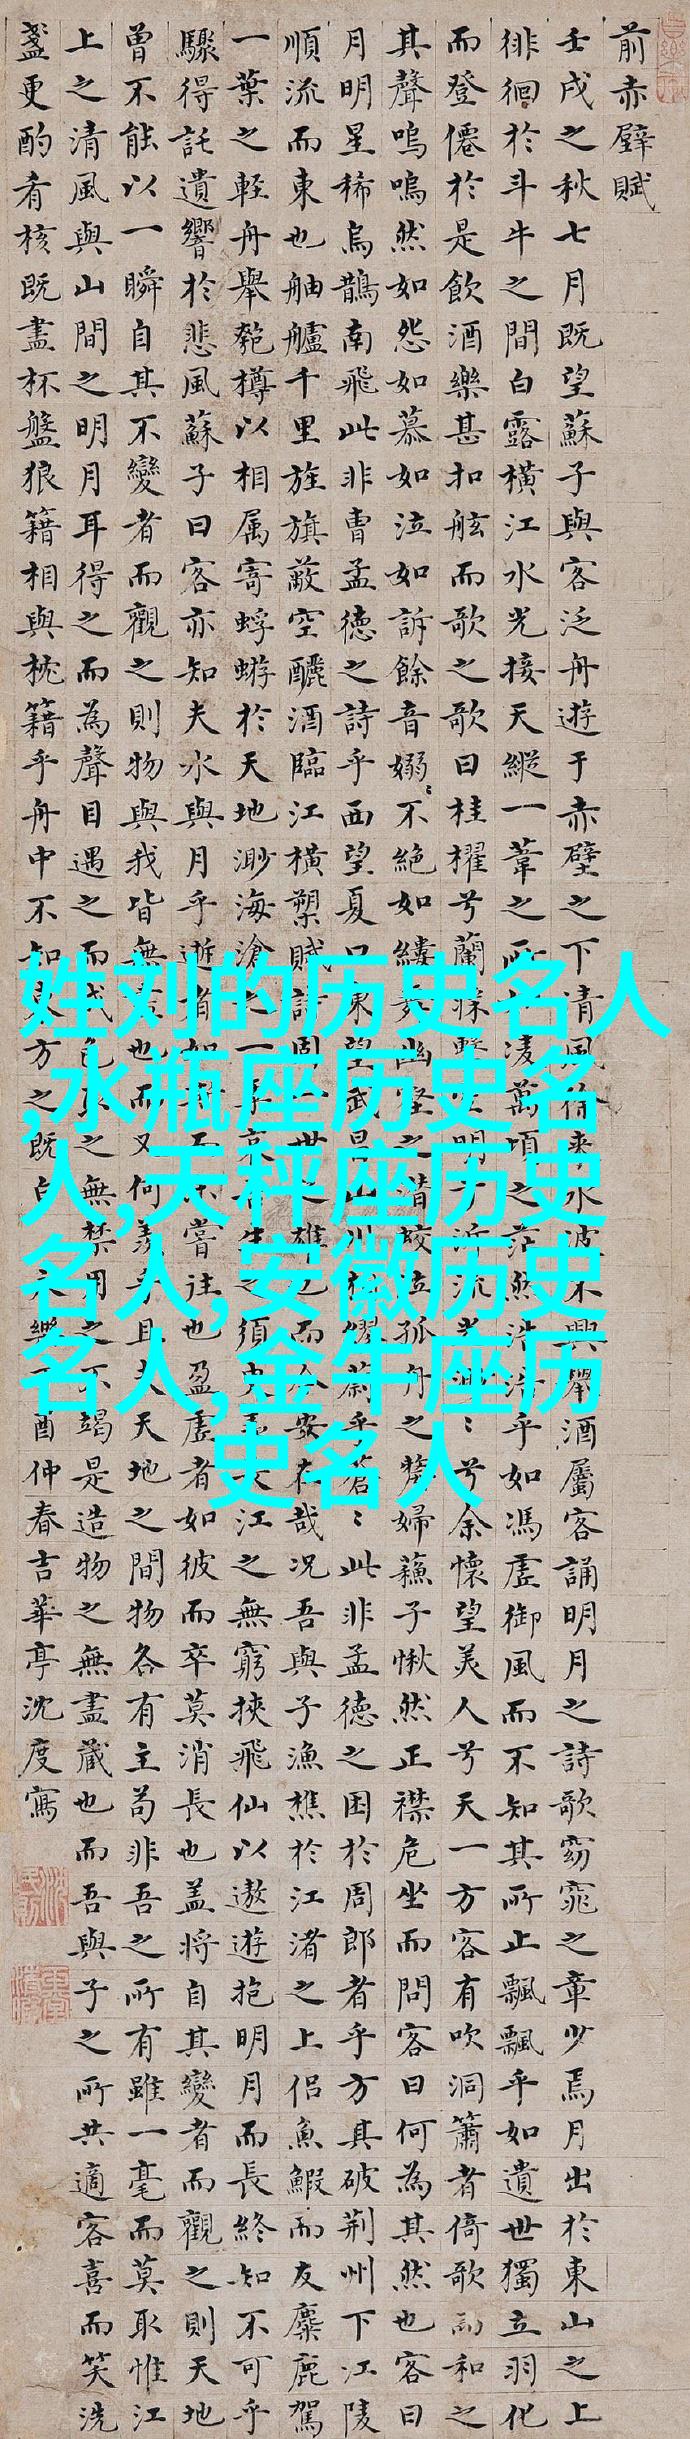 前赤壁賦
壬戌之秋七月既望蘇子與客泛舟遊于赤壁之下清風徐來水波不興舉酒屬客誦明月之詩歌窈窕之章少焉月出於東山之上
徘徊於斗牛之間白露橫江水光接天縱一葦之所凌萬頃之茫然浩浩乎如馮虛御風而不知其所止飄飄乎如遺世獨立羽化
而登僊於是飲酒樂甚扣舷而歌之歌曰桂櫂兮蘭槳擊空明兮泝流光渺〻兮余懷望美人兮天一方客有吹洞簫者倚歌而和之
其聲嗚嗚然如怨如慕如泣如訴餘音嫋〻不絕如縷舞幽壑之潛蛟泣孤舟之嫠婦蘓子愀然正襟危坐而問客曰何為其然也客曰
月明星稀烏鵲南飛此非曹孟德之詩乎西望夏口東望武昌山川相繆鬱乎蒼〻此非孟德之困於周郎者乎方其破荊州下江陵
順流而東也舳艫千里旌旗蔽空釃酒臨江橫槊賦詩固一世之雄也而今安在哉况吾與子漁樵於江渚之上侶魚鰕而友麋鹿駕
一葉之輕舟舉匏樽以相属寄蜉蝣於天地渺海滄一哀生之須臾長江之無窮挾飛仙以遨遊抱明月而長終知不可乎
驟得託遺響於悲風蘇子曰客亦知夫水與月乎逝者如而嘗往也盈虛者如彼而卒莫消長也盖將自其變者而觀之則天地
曾不能以一瞬自其不變者而觀之則物與我皆無也而又何羨乎且夫天地之間物各有主苟非吾之所有雖一毫而莫取惟江
上之清風與山間之明月耳得之而為聲目遇之而成色之無禁用之不竭是造物之無盡藏也而吾與子之所共適客喜而笑洗
盞更酌肴核既盡杯盤狼籍相與枕籍乎舟中不知東方之既白樂酉仲春吉華亭沈度寫
姓刘的历史名人
,水瓶座历史名
人,天秤座历史
名人,安徽历史
名人,金牛座历
史名人